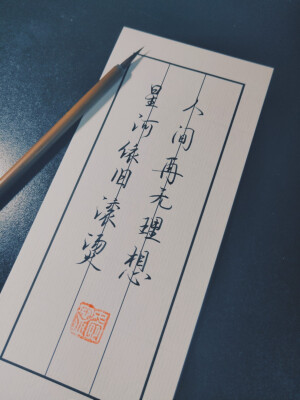 人间再无理想
星河依旧滚烫